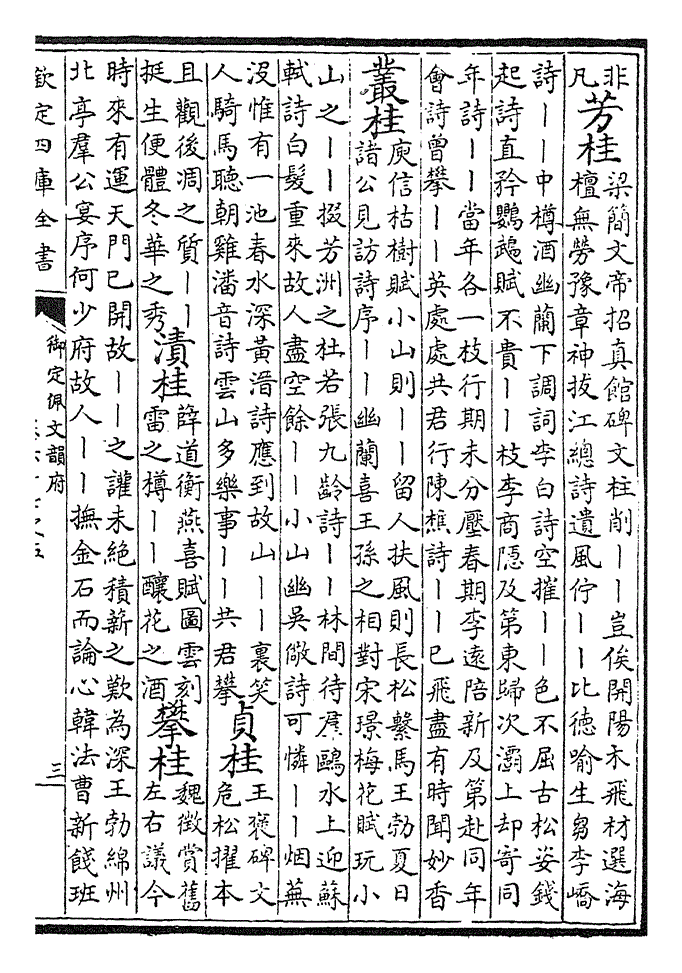 非
凡
芳桂
梁簡文帝招真館碑文柱削丨丨豈俟開陽木飛材選海
檀無勞豫章神拔江總詩遺風佇丨丨比德喻生芻李嶠
詩丨丨中樽酒幽蘭下調詞李白詩空摧丨丨色不屈古松姿錢
起詩直矜鸚鵡賦不貴丨丨枝李商隱及第東歸次灞上却寄同
年詩丨丨當年各一枝行期未分壓春期李遠陪新及第赴同年
會詩曾攀丨丨英處處共君行陳樵詩丨丨已飛盡有時聞妙香
叢桂
庾信枯樹賦小山則丨丨留人扶風則長松繫馬王勃夏日
諸公見訪詩序丨丨幽蘭喜王孫之相對宋璟梅花賦玩小
山之丨丨掇芳洲之杜若張九齡詩丨丨林間待羣鷗水上迎蘇
軾詩白髮重來故人盡空餘丨丨小山幽吳儆詩可憐丨丨烟蕪
沒惟有一池春水深黃溍詩應到故山丨丨裏笑
人騎馬聽朝雞潘音詩雲山多樂事丨丨共君攀
貞桂
王褒碑文
危松擢本
且觀後凋之質丨丨
挺生便體冬華之秀
漬桂
薛道衡燕喜賦圖雲刻
雷之樽丨丨釀花之酒
攀桂
魏徵賞舊
左右議今
時來有運天門已開故丨丨之讙未絕積薪之歎為深王勃綿州
北亭羣公宴序何少府故人丨丨撫金石而論心韓法曹新餞班
欽定四庫全書
御定佩文韻府
三